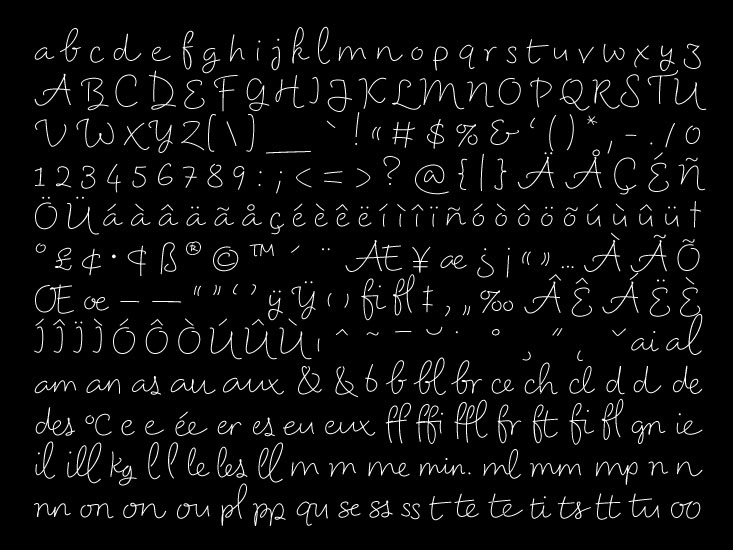 a b c d e f g h i j k l m n o p q r s t u v w x y z
A B C D E F G H I J K L M N O P Q R S T U
V W X Y Z [ \ ] _ ` ! “ # $ % & ‘ ( ) * , - . / 0
1 2 3 4 5 6 7 8 9 : ; < = > ? @ { | } Ä Å Ç É Ñ
Ö Ü á à â ä ã å ç é è ê ë í ì î ï ñ ó ò ô ö õ ú ù û ü †
° £ ¢ • ¶ ß ® © ™ ´ ¨ Æ ¥ æ ¿ ¡ « » … À Ã Õ
Œ œ – — “ ” ‘ ’ ÿ Ÿ ‹ › fi fl ‡ ‚ „ ‰ Â Ê Á Ë È
Í Î Ï Ì Ó Ô Ò Ú Û Ù ı ˆ ˜ ¯ ˘ ˙ ˚ ¸ ˝ ˛ ˇ ai al
am an as au aux & & b b bl br ce ch cl d d de
des °C e e ée er es eu eux ff ffi ffl fr ft fi fl gn ie
il ill kg l l le les ll m m me min. ml mm mp n n
nn on on ou pl pp qu se ss ss t te te ti ts tt tu oo